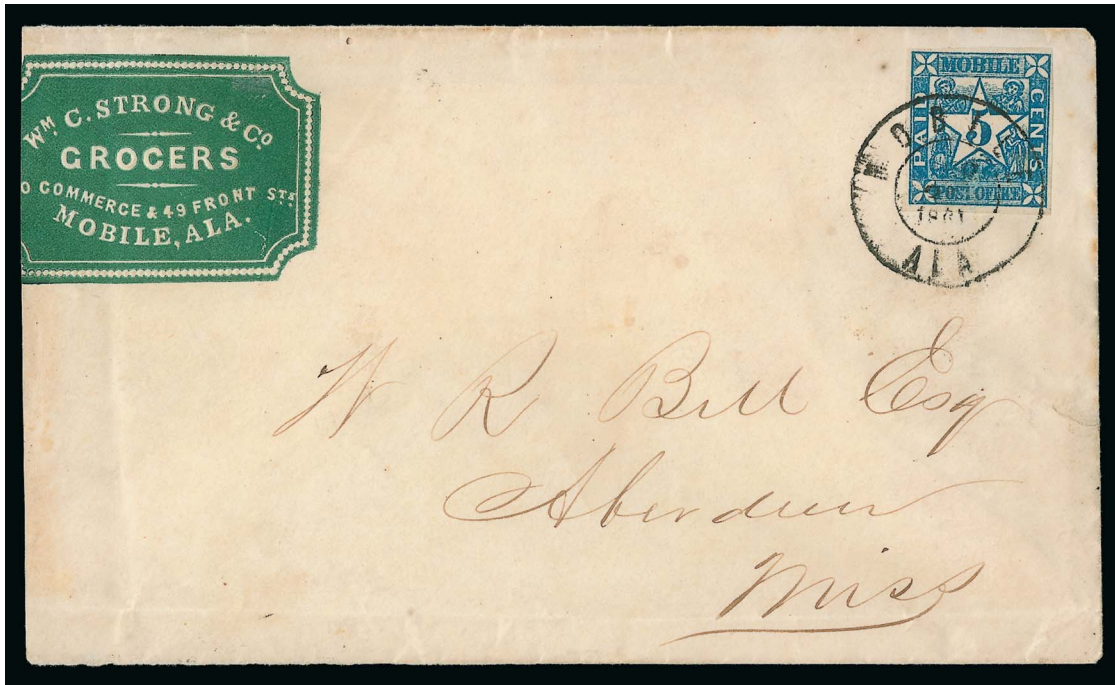 WM. C. STRONG & CO
GROCERS
0 COMMERCE & 49 FRONT STS
MOBILE, ALA.
MOBILE
PAID
5
CENTS
POST OFFICE
MOBILE
1861
ALA
W R Bill Esq
Aberdeen
Miss